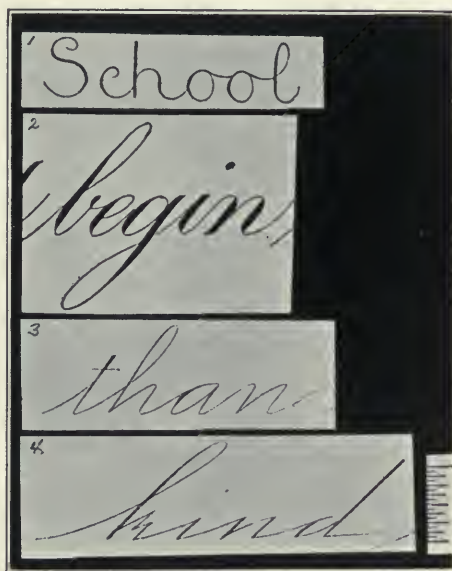 1 School
2 begin
3 than
4 kind